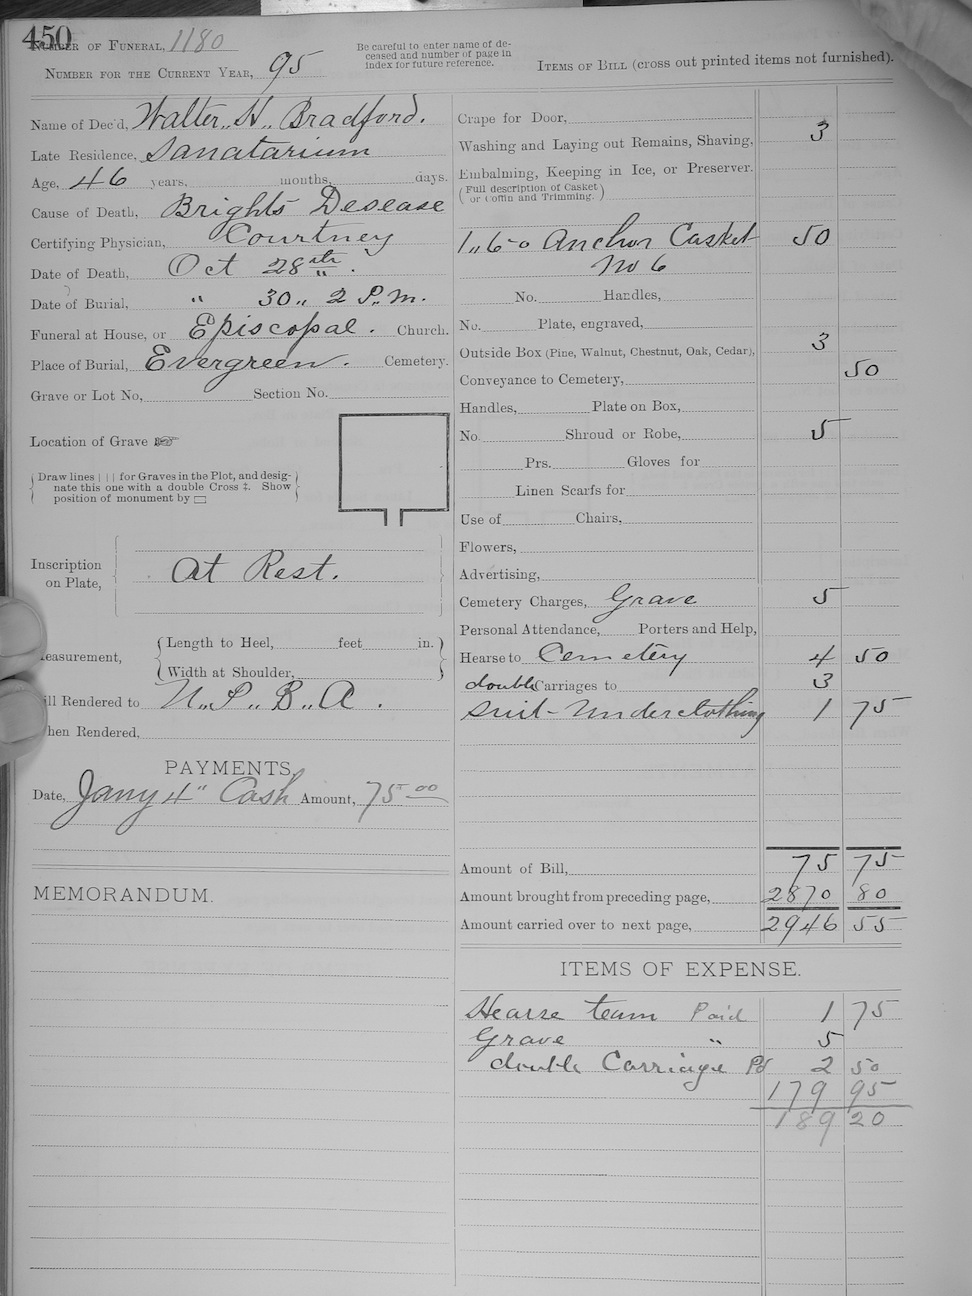 450
Number of Funeral, 1180
Number for the Current Year, 95
Be careful to enter name of de-
ceased and number of page in
index for future reference.
Items of Bill (cross out printed items not furnished).
Name of Dec'd, Walter,, H,, Bradford.
Late Residence, Sanatarium
Age, 46 years, months, days.
Cause of Death, Brights Desease
Certifying Physician, Courtney
Date of Death, Oct 28th .
Date of Burial, " 30,, 2 P.M.
Funeral at House, or Episcopal . Church.
Place of Burial, Evergreen . Cemetery.
Grave or Lot No, Section No.
Location of Grave ☞
Draw lines | | | for Graves in the Plot, and desig-
nate this one with a double Cross ‡. Show
position of monument by ▭
Inscription
on Plate,
At Rest.
easurement,
Length to Heel, feet in.
Width at Shoulder,
ill Rendered to U,,P,,B,,A .
hen Rendered,
PAYMENTS,
Date, Jany 4" Cash Amount, 75 00
MEMORANDUM.
Crape for Door,
Washing and Laying out Remains, Shaving, 3
Embalming, Keeping in Ice, or Preserver.
(Full description of Casket
or Coffin and Trimming.)
1,, 6-0 Anchor Casket 50
No 6
No. Handles,
No. Plate, engraved,
Outside Box (Pine, Walnut, Chestnut, Oak, Cedar), 3
Conveyance to Cemetery, 50
Handles, Plate on Box,
No. Shroud or Robe, 5
Prs. Gloves for
Linen Scarfs for
Use of Chairs,
Flowers,
Advertising,
Cemetery Charges, Grave 5
Personal Attendance, Porters and Help,
Hearse to Cemetery 4 50
double Carriages to 3
Suit - Underclothing 1 75
Amount of Bill, 75 75
Amount brought from preceding page, 2870 80
Amount carried over to next page, 2946 55
ITEMS OF EXPENSE.
Hearse team Paid 1 75
Grave " 5
double Carriage Pd 2 50
179 95
189 20